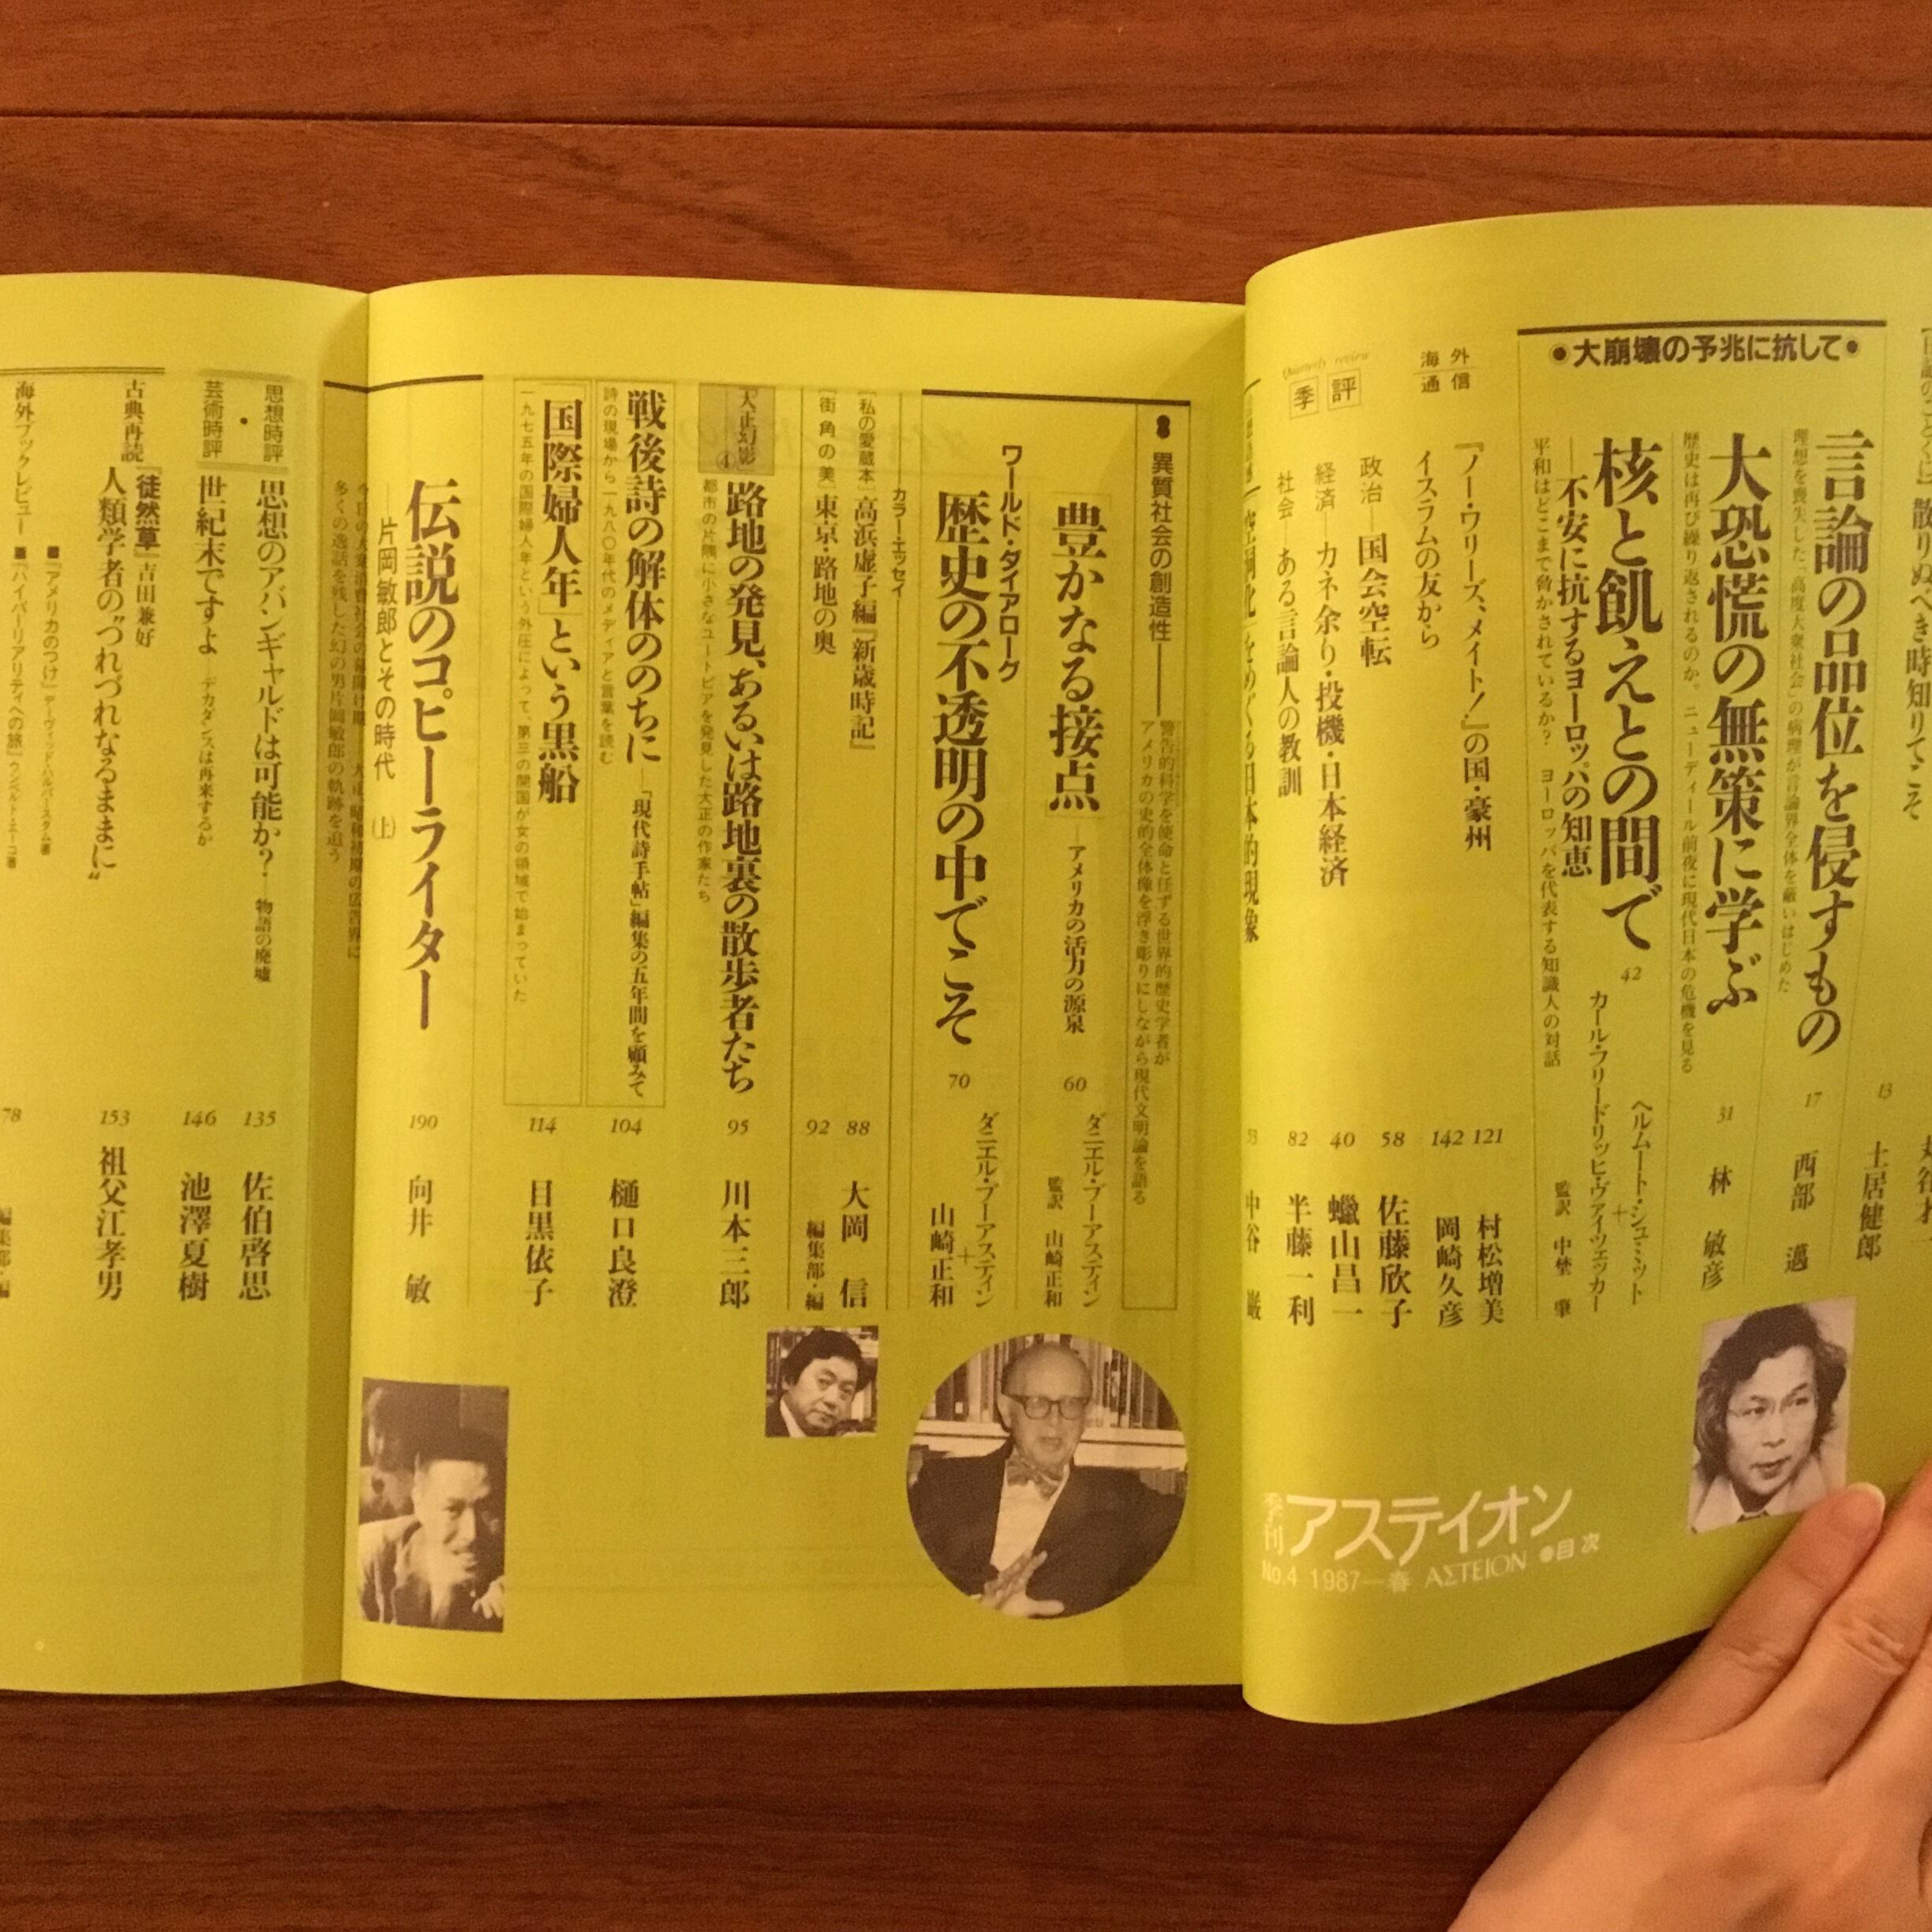 散りぬべき時知りてこそ
13
土居健郎
言論の品位を侵すもの
17
西部 邁
理想を喪失した「高度大衆社会」の病理が言論界全体を蔽いはじめた
大恐慌の無策に学ぶ
31
林 敏彦
歴史は再び繰り返されるのか。ニューディール前夜に現代日本の危機を見る
●大崩壊の予兆に抗して●
核と飢えとの間で
―不安に抗するヨーロッパの知恵
42
ヘルムート・シュミット
+
カール・フリードリッヒ・ヴァイツェッカー
監訳 中埜 肇
平和はどこまで脅かされているか? ヨーロッパを代表する知識人の対話
海外通信
『ノー・ワリーズ、メイト!』の国・豪州
121
村松増美
イスラムの友から
142
岡崎久彦
Quarterly review
季評
政治―国会空転
58
佐藤欣子
経済―カネ余り・投機・日本経済
40
蠟山昌一
社会―ある言論人の教訓
82
半藤一利
をめぐる日本的現象
53
中谷 巌
季刊アステイオン
No.4 1987―春 ΑΣΤΕΙΟΝ ●目次
異質社会の創造性―
警告的科学を使命と任ずる世界的歴史学者が
アメリカの史的全体像を浮き彫りにしながら現代文明論を語る
豊かなる接点
―アメリカの活力の源泉
60
ダニエル・ブーアスティン
監訳 山崎正和
ワールド・ダイアローグ
歴史の不透明の中でこそ
70
ダニエル・ブーアスティン
+
山崎正和
カラー・エッセイ
[私の愛蔵本]高浜虚子編『新歳時記』
88
大岡 信
[街角の美]東京・路地の奥
92
編集部・編
大正幻影④
路地の発見、あるいは路地裏の散歩者たち
95
川本三郎
都市の片隅に小さなユートピアを発見した大正の作家たち
戦後詩の解体ののちに
―「現代詩手帖」編集の五年間を顧みて
104
樋口良澄
詩の現場から一九八〇年代のメディアと言葉を読む
「国際婦人年」という黒船
114
目黒依子
一九七五年の国際婦人年という外圧によって、第三の開国が女の領域で始まっていた
伝説のコピーライター
―片岡敏郎とその時代 (上)
190
向井 敏
多くの逸話を残した幻の男片岡敏郎の軌跡を追う
思想時評
思想のアバンギャルドは可能か?―物語の廃墟
135
佐伯啓思
・
芸術時評
世紀末ですよ―デカダンスは再来するか
146
池澤夏樹
古典再読
『徒然草』吉田兼好
人類学者の〝つれづれなるままに〟
153
祖父江孝男
海外ブックレビュー
■『アメリカのつけ』デーヴィッド・ハルバースタム著
■『ハイパーリアリティへの旅』ウンベルト・エーコ著
78
編集部・編